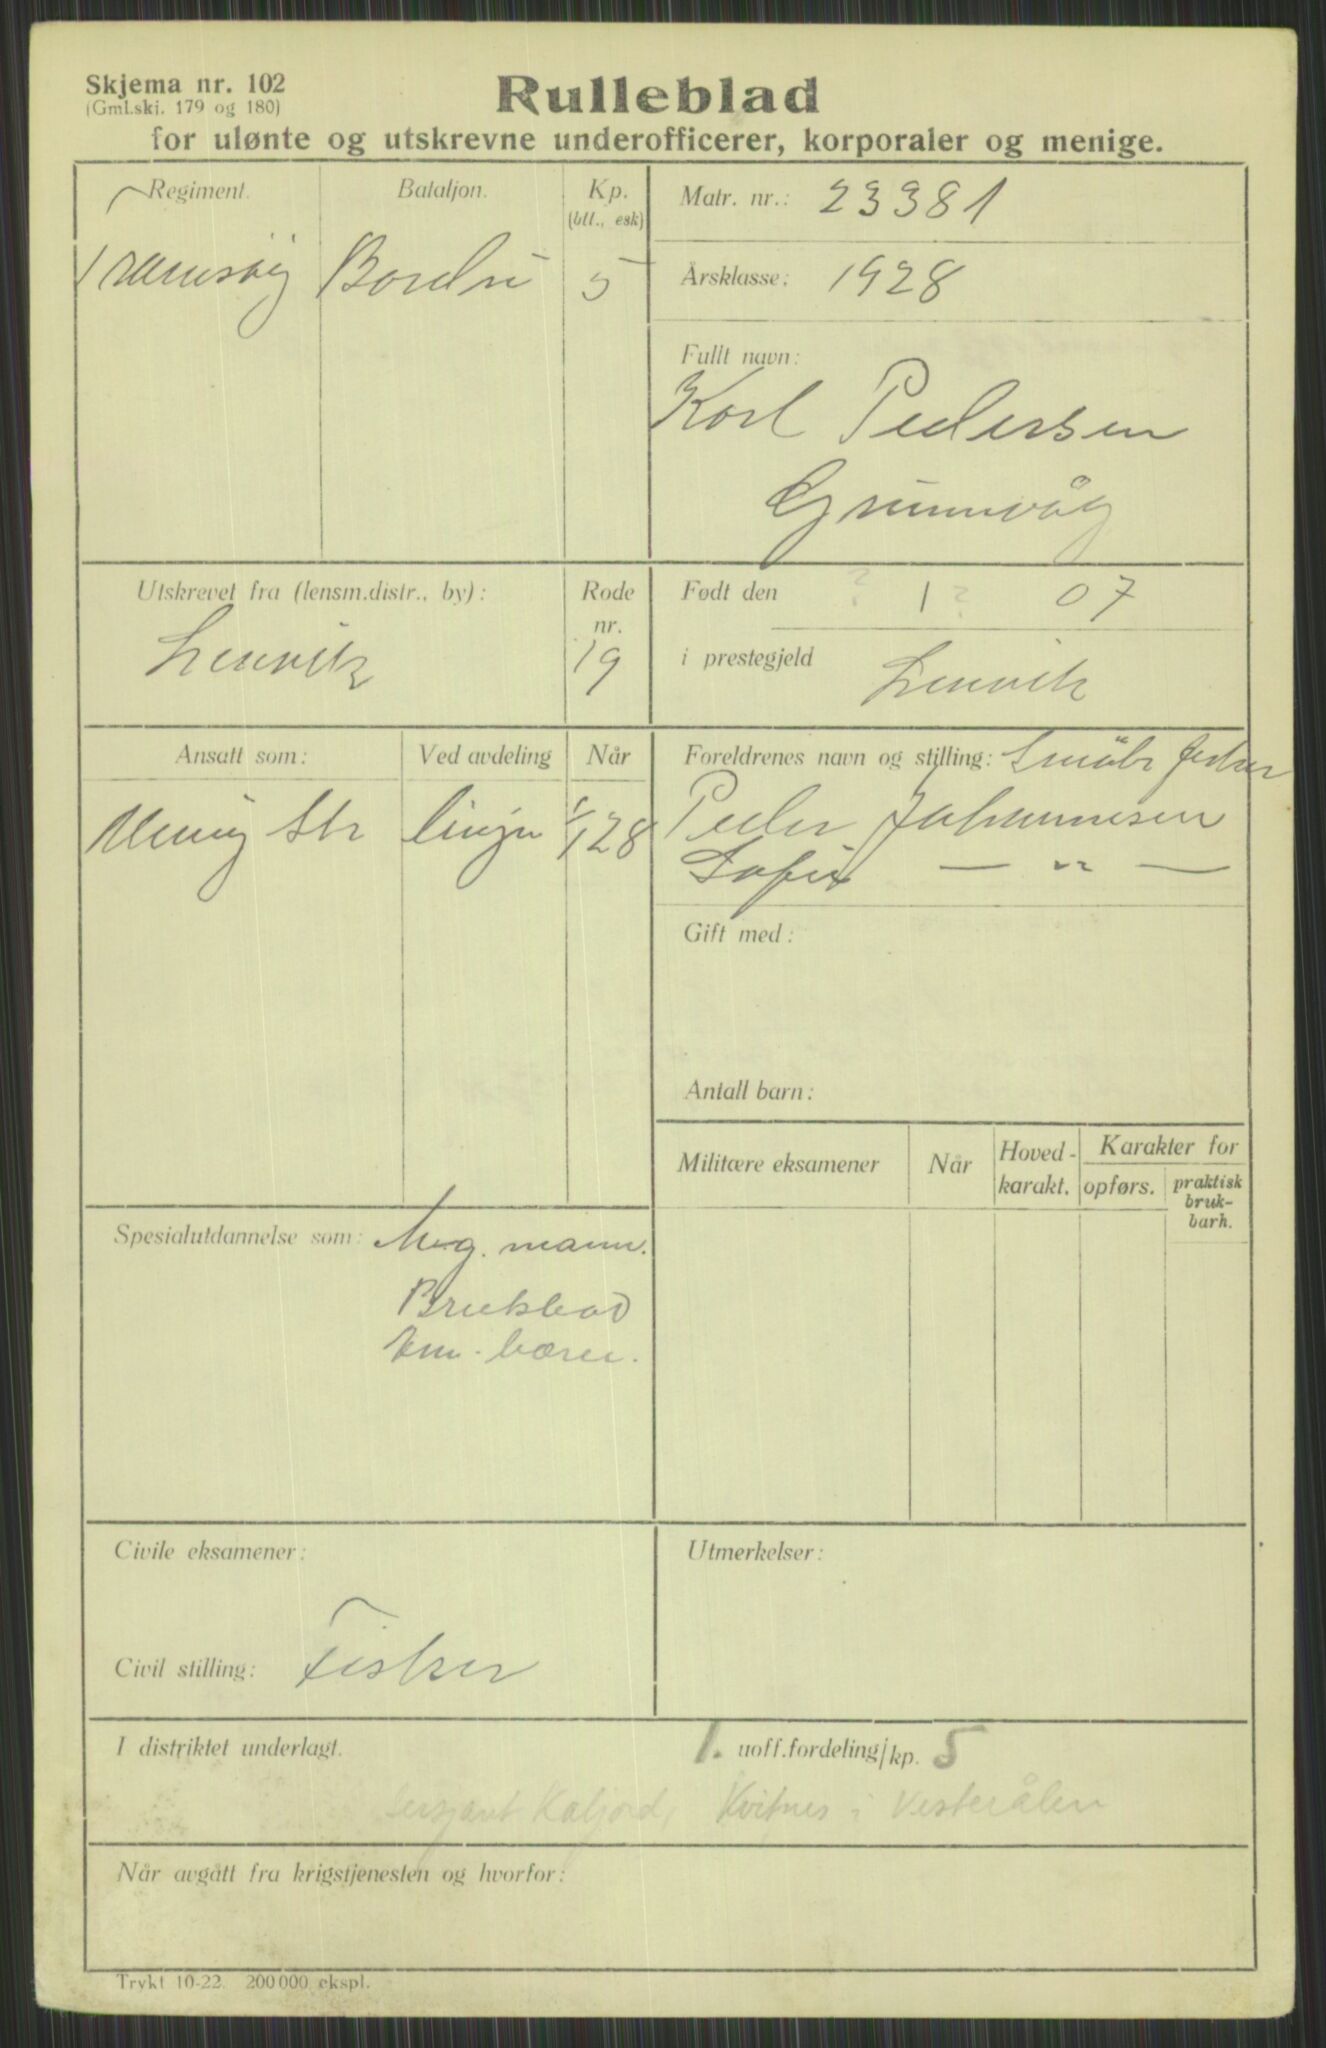 Skjema nr. 102
(Gml.skj. 179 og 180)
Rulleblad
for ulønte og utskrevne underofficerer, korporaler og menige.
Regiment.
Bataljon.
Kp.
(btt., esk)
Bardu
5
Matr. nr.: 23381
Årsklasse: 1928
Fullt navn:
Karl Pedersen
Grunnvåg
Utskrevet fra (lensm.distr., by):
Lenvik
Rode
nr.
19
Født den ? 1 ? 07
i prestegjeld Lenvik
Ansatt som:
Ved avdeling
Når
Menig Str linjen 1/1 28
Foreldrenes navn og stilling: Småbr fisker
Peder Johannesen
Sofie — „ —
Gift med:
Antall barn:
Militære eksamener
Når
Hoved-
karakt.
Karakter for
opførs.
praktisk
bruk-
barh.
Spesialutdannelse som: Mg. mann.
Brukbar
Am. bærer.
Civile eksamener:
Civil stilling: Fisker
Utmerkelser:
I distriktet underlagt.
1. uoff.fordeling/kp. 5
Sersjant Kaljord, Kvitnes i Vesterålen
Når avgått fra krigstjenesten og hvorfor:
Trykt 10-22. 200 000 ekspl.